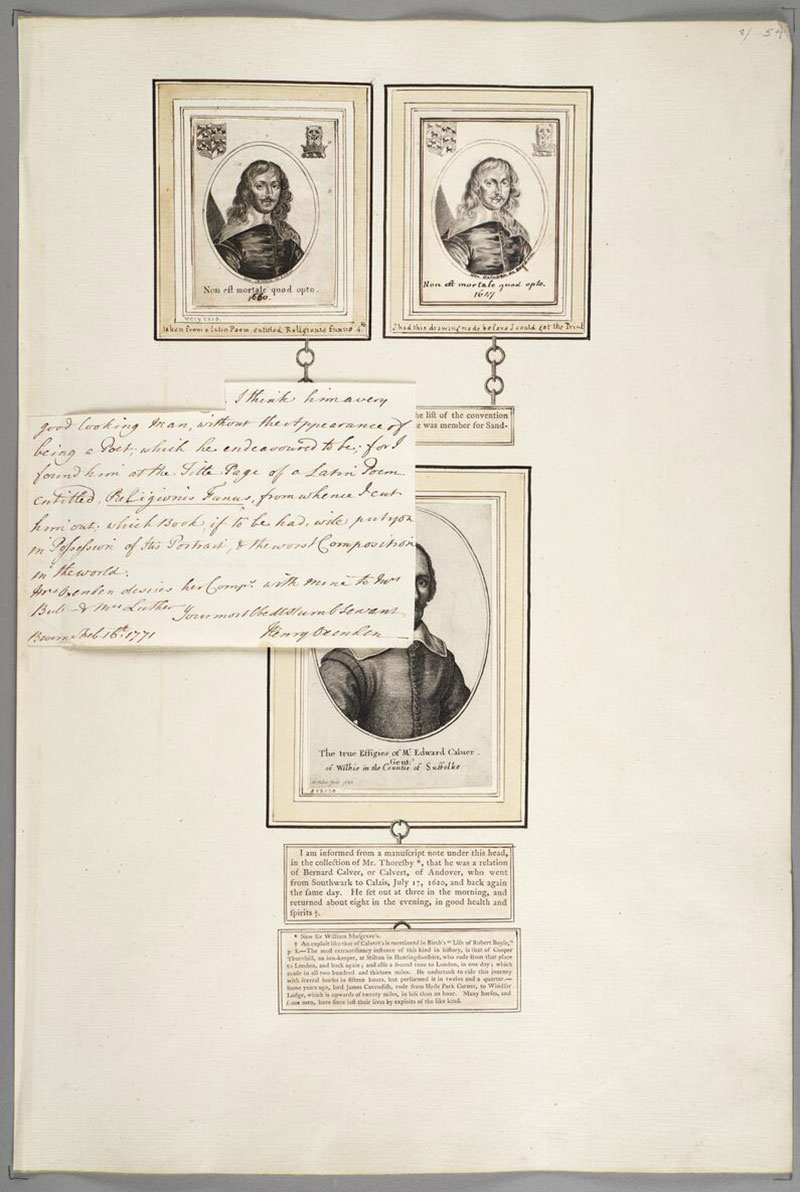 54
Non est mortale quod opto.
1660.
Very rare.
taken from a Latin Poem, entitled Religionis Funus. 4to
Non est mortale quod opto.
1647
I had this drawing made before I could get the Print
he list of the convention
e was member for Sand-
I think him a very
good looking Man, without the Appearance of
being a Poet; which he endeavoured to be; for I
found him at the Title Page of a Latin Poem
entitled, Religionis Funus, from whence I cut
him out; which Book, if to be had, will put you
in Possession of Its Portrait, & the worst Composition
in the world.
Mrs Oxenden desires her Comps. with mine to Mrs
Bull & Mrs Luther
Your most Obedt Humble Servant
Broome Feb. 16th 1771
Henry Oxenden
The true Effigies of Mr. Edward Caluer.
Gent:
of Wilbie in the Countie of Suffolke
I am informed from a manuſcript note under this head,
in the collection of Mr. Thoreſby *, that he was a relation
of Bernard Calver, or Calvert, of Andover, who went
from Southwark to Calais, July 17, 1620, and back again
the ſame day. He ſet out at three in the morning, and
returned about eight in the evening, in good health and
ſpirits †.
* Now Sir William Muſgrave's.
† An exploit like that of Calvert's is mentioned in Birch's "Life of Robert Boyle,"
p. —The moſt extraordinary inſtance of this kind in hiſtory, is that of Cooper
Thornhill, an inn-keeper, at Stilton in Huntingdonſhire, who rode from that place
to London, and back again; and alſo a ſecond time to London, in one day; which
made in all two hundred and thirteen miles. He undertook to ride this journey
with ſeveral horſes in fifteen hours, but performed it in twelve and a quarter.—
Some years ago, lord James Cavendiſh, rode from Hyde Park Corner, to Windſor
Lodge, which is upwards of twenty miles, in leſs than an hour. Many horſes, and
ſome men, have ſince loſt their lives by exploits of the like kind.